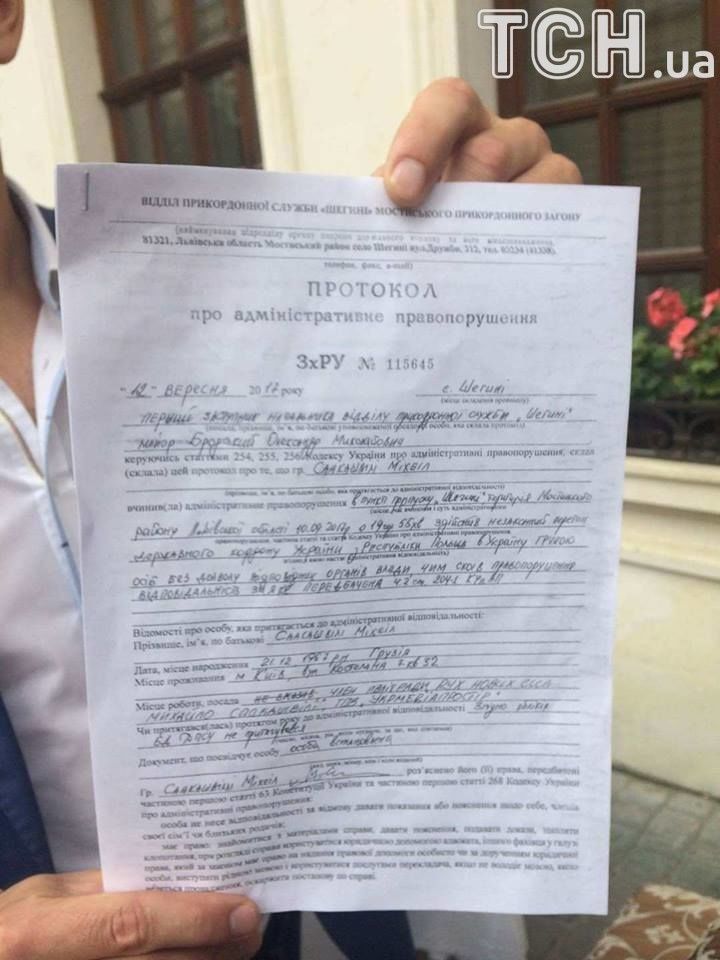 ТСН.ua
ВІДДІЛ ПРИКОРДОННОЇ СЛУЖБИ «ШЕГИНІ» МОСТИСЬКОГО ПРИКОРДОННОГО ЗАГОНУ
81321, Львівська область Мостиський район село Шегині вул.Дружби, 212, тел.
телефон, факс, e-mail)
ПРОТОКОЛ
про адміністративне правопорушення
ЗхРУ № 115645
"12" ВЕРЕСНЯ 2017 року с. Шегині
(місце складення протоколу)
ПЕРШИЙ ЗАСТУПНИК НАЧАЛЬНИКА ВІДДІЛУ ПРИКОРДОННОЇ СЛУЖБИ "ШЕГИНІ"
майор Олександр Миколайович
керуючись статтями 254, 255, 256 Кодексу України про адміністративні правопорушення, склав
(склала) цей протокол про те, що гр. СААКАШВІЛІ МІХЕІЛ
(прізвище, ім'я, по батькові особи, яка притягається до адміністративної відповідальності)
вчинив(ла) адміністративне правопорушення в пункті пропуску "Шегині" територія Мостиського
району Львівської області 10.09.2017р о 19 год здійснив незаконний перетин
державного кордону України з Республіки Польща в Україну групою
осіб БЕЗ ДОЗВОЛУ відповідних органів влади, чим скоїв правопорушення
ВІДПОВІДАЛЬНІСТЬ ЗА ЯКЕ ПЕРЕДБАЧЕНА ч.2 ст. 204-1 КУпАП
Відомості про особу, яка притягається до адміністративної відповідальності:
Прізвище, ім'я, по батькові СААКАШВІЛІ МІХЕІЛ
Дата, місце народження 21.12.1967 рн Грузія
Місце проживання м Київ, вул Костельна
Місце роботи, посада ЧЛЕН РУХ НОВИХ СИЛ
МИХАЙЛО СААКАШВІЛІ
Чи притягався(лась) протягом року до адміністративної відповідальності
БД ДПСУ не притягувався
Документ, що посвідчує особу особа встановлена
Гр. СААКАШВІЛІ МІХЕІЛ роз'яснено його (її) права, передбачені
частиною першою статті 63 Конституції України та частиною першою статті 268 Кодексу України
про адміністративні правопорушення:
особа не несе відповідальності за відмову давати показання або пояснення щодо себе, членів
своєї сім'ї чи близьких родичів;
має право: знайомитися з матеріалами справи, давати пояснення, подавати докази, заявляти
клопотання, при розгляді справи користуватися юридичною допомогою адвоката, іншого фахівця у галузі
права, який за законом має право на надання правової допомоги особисто чи за дорученням юридичної
особи, виступати рідною мовою і користуватися послугами перекладача, якщо не володіє мовою, якою
ведеться провадження, оскаржити постанову по справі.